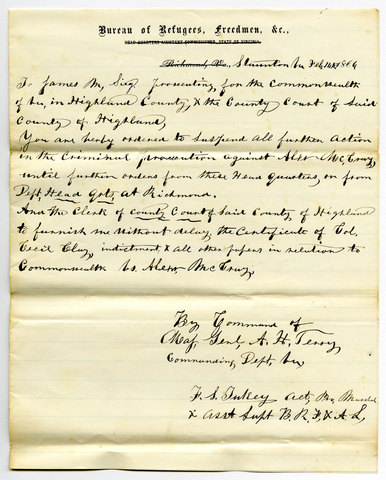 Bureau of Refugees, Freedmen, &c.,
HEAD QUARTERS ASSISTANT COMMISSIONER, STATE OF VIRGINIA,
Richmond, Va., Staunton Va Feb 1866
To James M, Sieg prosecuting, for the Commonwealth
of Va, in Highland County, & the County Court of Said
County of Highland,
You are herby ordered to suspend all further action
in the Criminal prosecution against Alex McCray,
until further orders from these Head Quarters, or from
Dept, Head Qrts, at Richmond.
And the Clerk of county Court of Said County, of Highland
to furnish me without delay, the Certificate of Col,
Cecil Clay, indictment & all other papers in relation to
Commonwealth Vs. Alexr McCray,
By Command of
Maj, Genl, A. H. Terry,
Commanding, Dept, Va,
F. S. Tukey Act, Pro, Marshal
& Asst Supt B. R. F, & A. L,